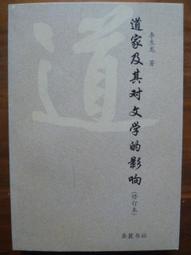 道
道家及其对文学的影响
（修订本）
李生龙 著
岳麓书社